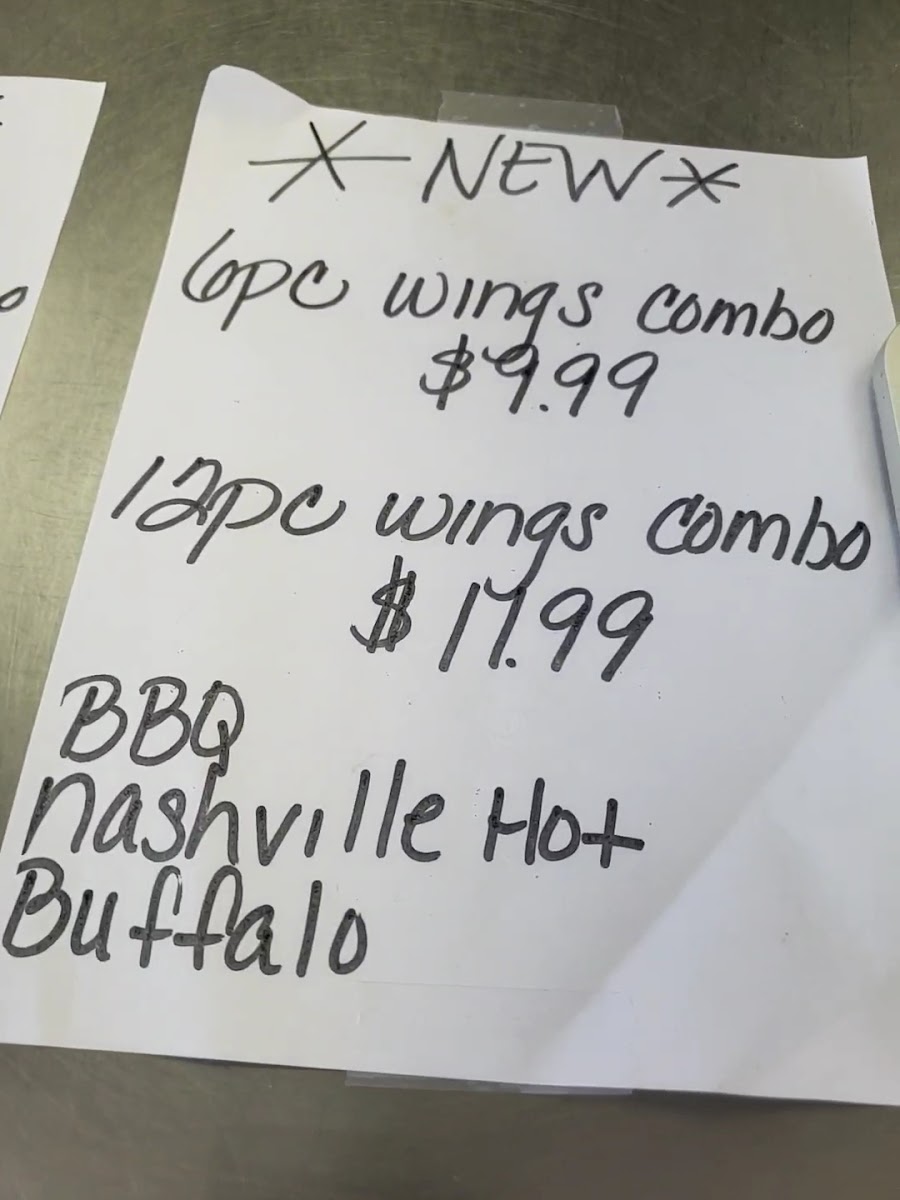 * NEW *
6pc wings combo
$9.99
12pc wings combo
$ 17.99
BBQ
Nashville Hot
Buffalo